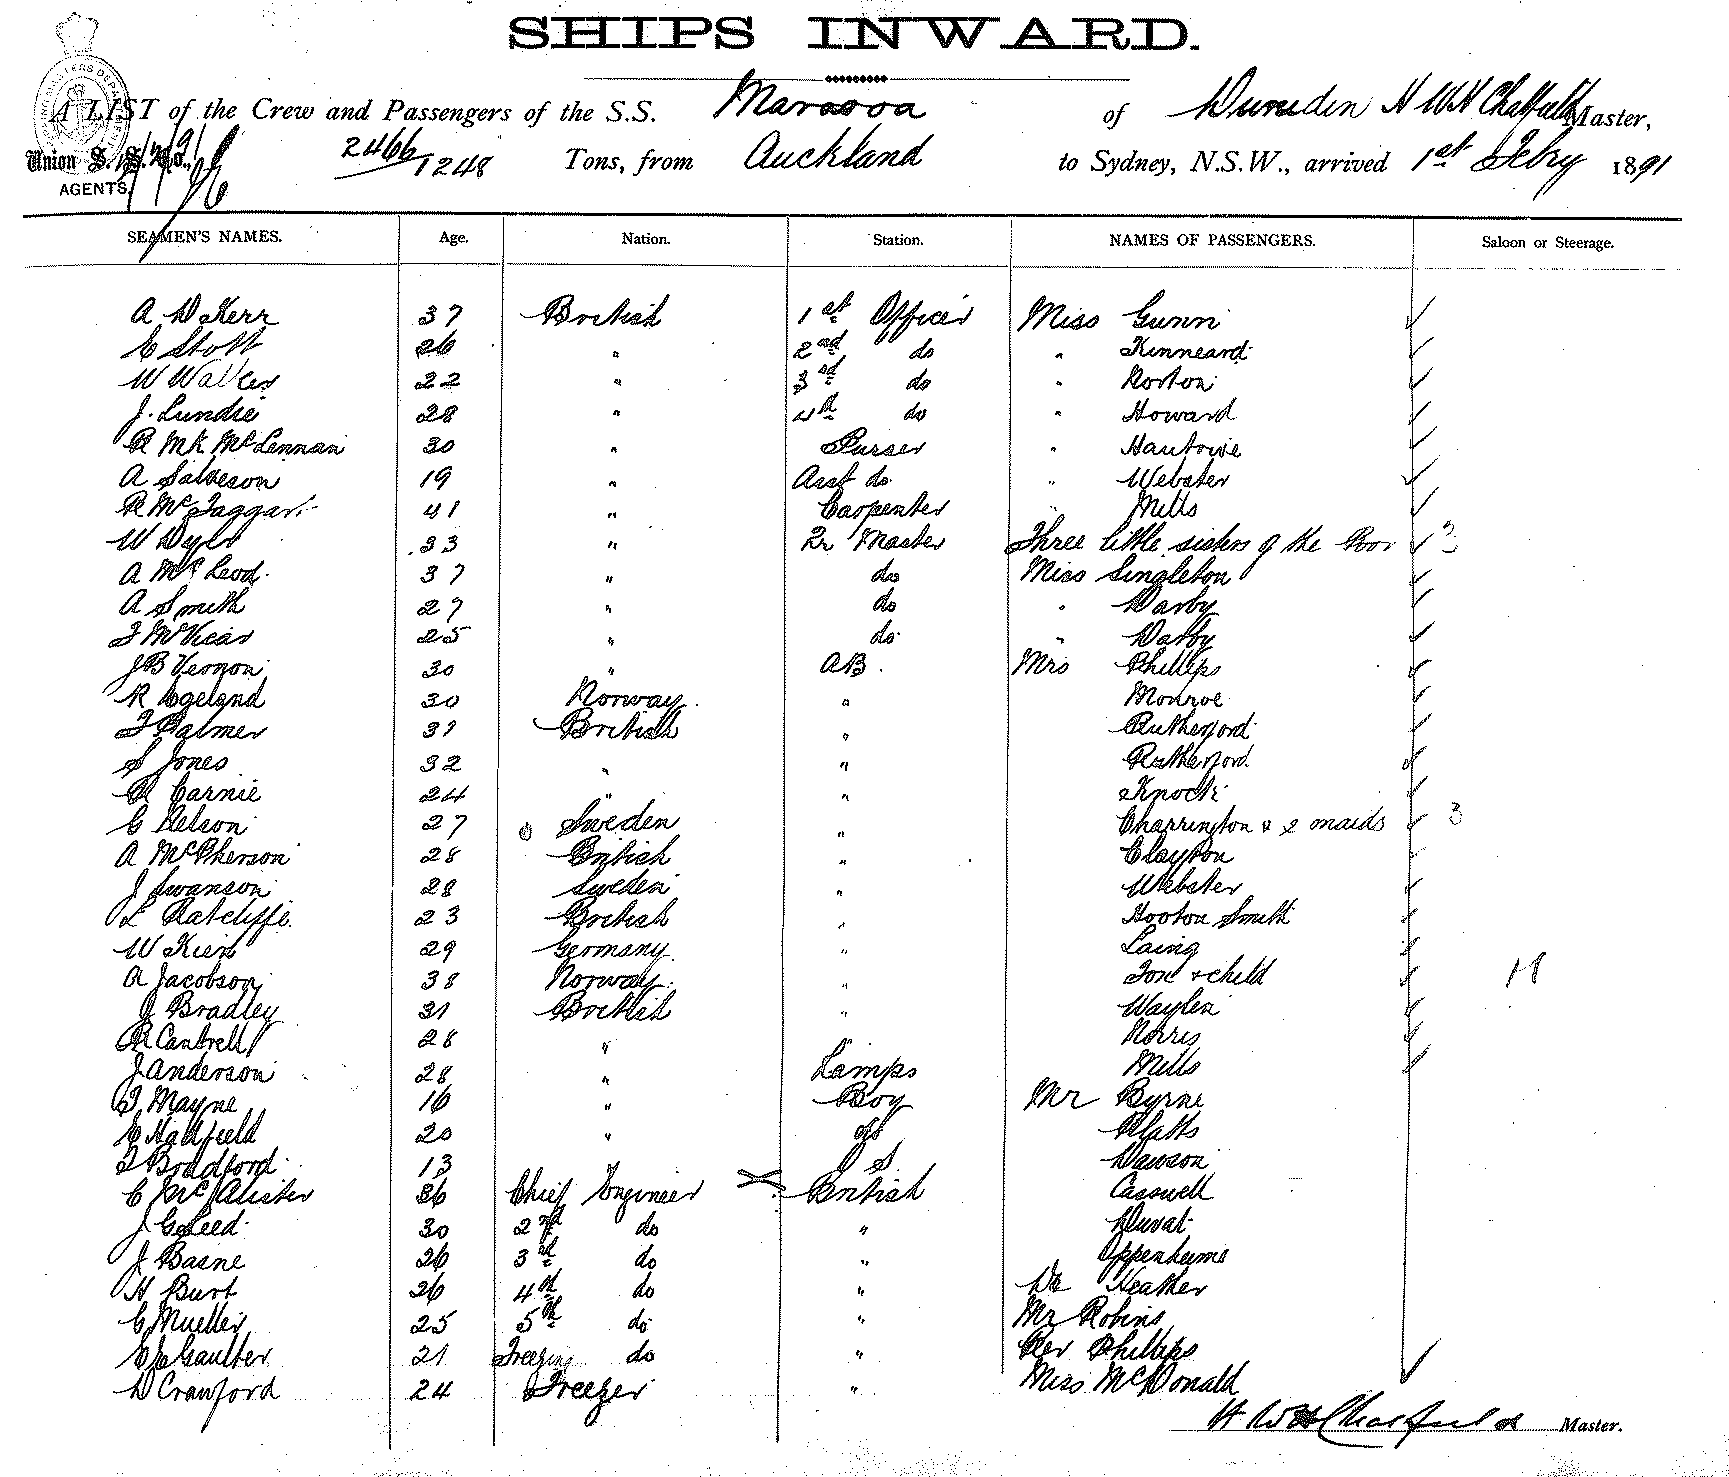 SHIPS INWARD.
A LIST of the Crew and Passengers of the S.S. Mararoa of Dunedin H W H Chatfield Master,
Union S. S. Co., 2466/1248 Tons, from Auckland to Sydney, N.S.W., arrived 1st Febry 1891
AGENTS.
SEAMEN'S NAMES. Age. Nation. Station. NAMES OF PASSENGERS. Saloon or Steerage.
A D Kerr 37 British 1st Officer Miss Gunn
E Stott 26 " 2nd do " Kinneard
W Walker 22 " 3rd do " Norton
J. Lundie 28 " 4th do " Howard
R McK McLennan 30 " Purser "
A Salveson 19 " Asst do " Webster
R McTaggart 41 " Carpenter " Mills
W 33 " Qr Master Three little sisters of the Poor 3
A McLeod 37 " do Miss Singleton
A Smith 27 " do " Darby
McVicar 25 " do " Darby
J B Vernon 30 " AB. Mrs Phillips
R 30 Norway " Monroe
Palmer 31 British " Rutherford
S Jones 32 " " Rutherford
R Carnie 24 " "
C Nelson 27 Sweden " Charrington & 2 maids 3
A McPherson 28 British " Clayton
J Swanson 28 Sweden " Webster
L Ratcliffe 23 British " Hooton Smith
W 29 Germany " Laing
A Jacobson 38 Norway " Fox & child
J Bradley 31 British "
R Cantrell 28 " " Norris
J Anderson 28 " Lamps Mills
Mayne 16 " Boy Mr Byrne
E Hadfield 20 " do Platts
Bradford 13 " Dawson
C McAlister 36 Chief Engineer British Casswell
J G Leed 30 2nd do " Duvat
J 26 3rd do " Oppenheime
H Burt 26 4th do " Dr Heather
C Mueller 25 5th do " Mr Robins
Gaulter 21 Freezing do " Rev Phillips
D Cranford 24 Freezer " Miss McDonald
H W H Chatfield Master.